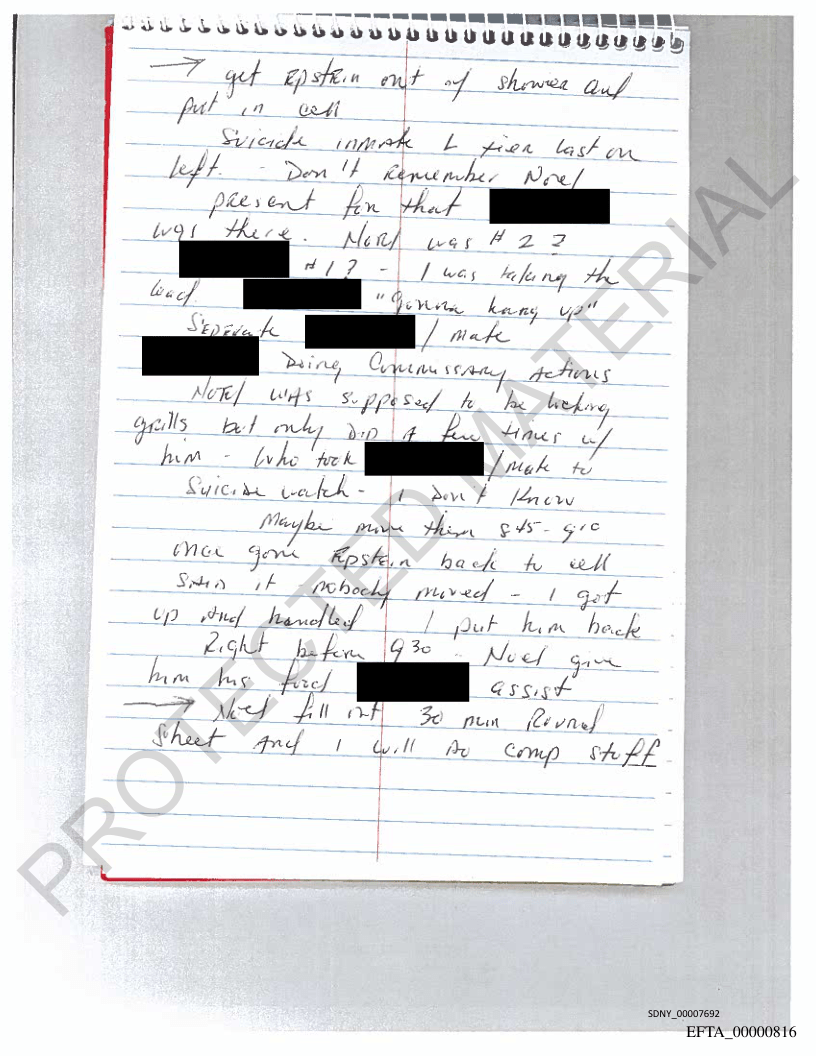 → get Epstein out of shower and
put in cell
Suicide inmate L tier last on
left. - Don't Remember Noel
present for that
was there. Noel was # 2 ?
# 1 ? - I was taking the
lead. "Gonna hang up"
Seperate / mate
Doing Commissary actions
Noel was supposed to be locking
grills but only DID A few times w/
him - who took / mate to
Suicide watch - I Don't Know
Maybe move them 845-910
once gone Epstein back to cell
it - nobody moved - I got
up And handled I put him back
Right before 930 - Noel give
him his food assist
→ Noel fill out 30 min Round
Sheet And I will do comp stuff
PROTECTED MATERIAL
SDNY_00007692
EFTA_00000816